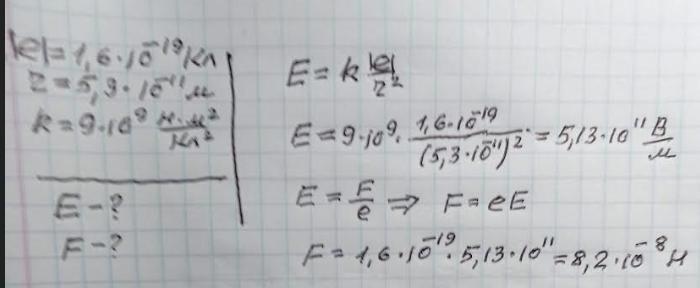 |e| = 1,6·10⁻¹⁹ Кл
r = 5,3·10⁻¹¹ м
k = 9·10⁹ Н·м²/Кл²
E - ?
F - ?
E = k |e|/r²
E = 9·10⁹ · 1,6·10⁻¹⁹/(5,3·10⁻¹¹)² = 5,13·10¹¹ В/м
E = F/e ⇒ F = eE
F = 1,6·10⁻¹⁹ · 5,13·10¹¹ = 8,2·10⁻⁸ Н